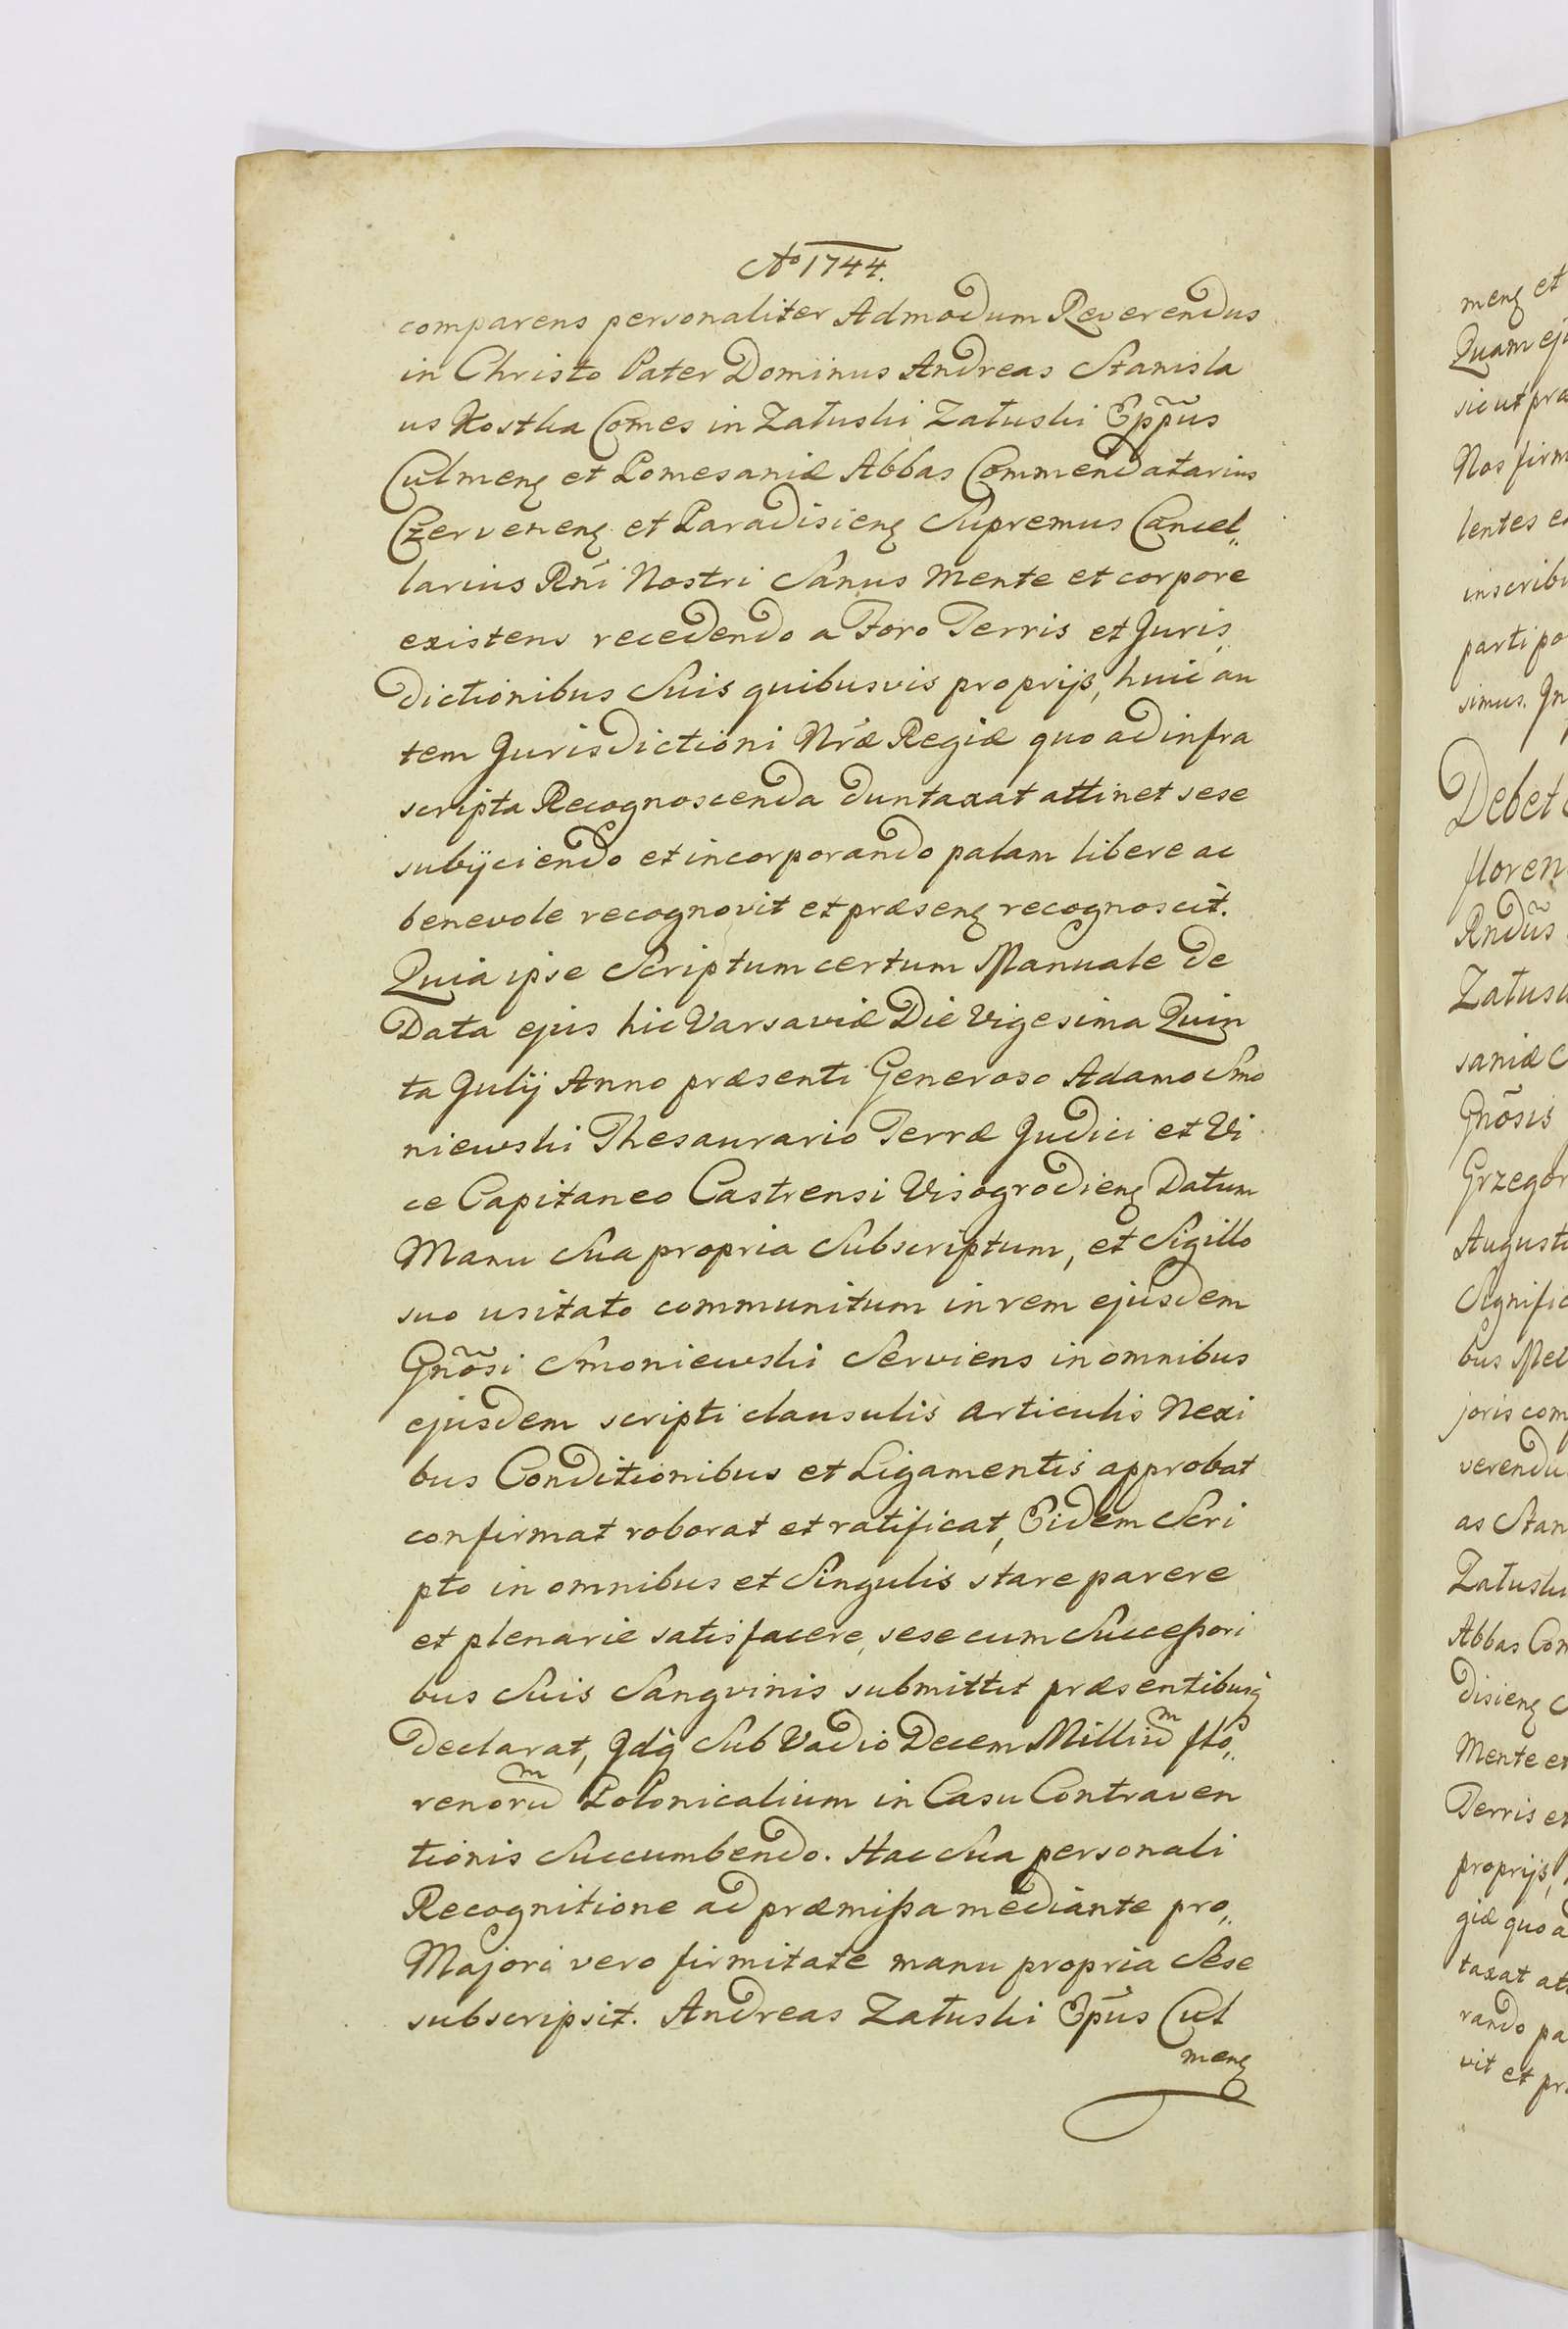 Aº 1744.
comparens personaliter Admodum Reverendus
in Christo Pater Dominus Andreas Stanisla
us Kostka Comes in Załuski Załuski Eppũs
Culmenꝫ et Pomesaniæ Abbas Commendatarius
Czervenenꝫ et Paradisienꝫ Supremus Cancel„
larius Rńi Nostri Sanus Mente et corpore
existens recedendo a Foro Terris et Juris„
dictionibus Suis quibusvis proprijs, huic au
tem Jurisdictioni Nræ Regiæ quo ad infra
scripta Recognoscenda duntaxat attinet sese
subijciendo et incorporando palam libere ac
benevole recognovit et præsenꝫ recognoscit.
Quia ipse Scriptum certum Manuale de
Data ejus hic Varsaviæ Die Vigesima Quin
ta Julij Anno præsenti Generoso Adamo Smo
niewski Thesaurario Terræ Judici et Vi
ce Capitaneo Castrensi Visogrodienꝫ Datum
Manu Sua propria Subscriptum, et Sigillo
suo usitato communitum in rem ejusdem
Gnõsi Smoniewski Serviens in omnibus
ejusdem scripti clausulis articulis Nexi
bus Conditionibus et Ligamentis approbat
confirmat roborat et ratificat, Eidem Scri
pto in omnibus et Singulis stare parere
et plenarie satisfacere, sese cum Succeßori
bus Suis Sangvinis submittit præsentibusq
Declarat, Idq Sub Vadio Decem Milliũm flo„
renorũm Polonicalium in Casu Contraven
tionis Succumbendo. Hac Sua personali
Recognitione ad præmißa mediante pro„
Majori vero firmitate manu propria Sese
subscripsit. Andreas Załuski Epũs Cul
menꝫ
menꝫ et
Quam ej
sicut præ
Nos firm
lentes e
inscribi
parti po
simus. In
Debet
floren
Rndũs
Załus
saniæ C
Gnõsis
Grzegor
Augusti
Signific
bus Me
joris com
verendu
as Stan
Załuski
Abbas Com
disienꝫ
Mente et
Terris et
proprijs,
giæ quo a
taxat at
rando pa
vit et pr